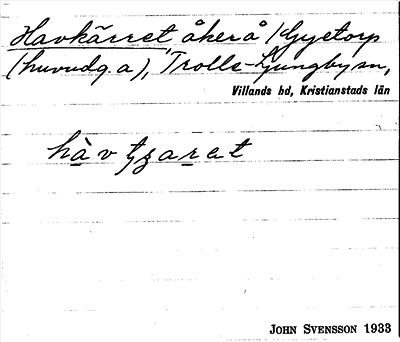 Havkärret, åker å Gyetorp
(huvudg. a), Trolle-Ljungby sn,
Villands hd, Kristianstads län
hàvtʒaret
JOHN SVENSSON 1933